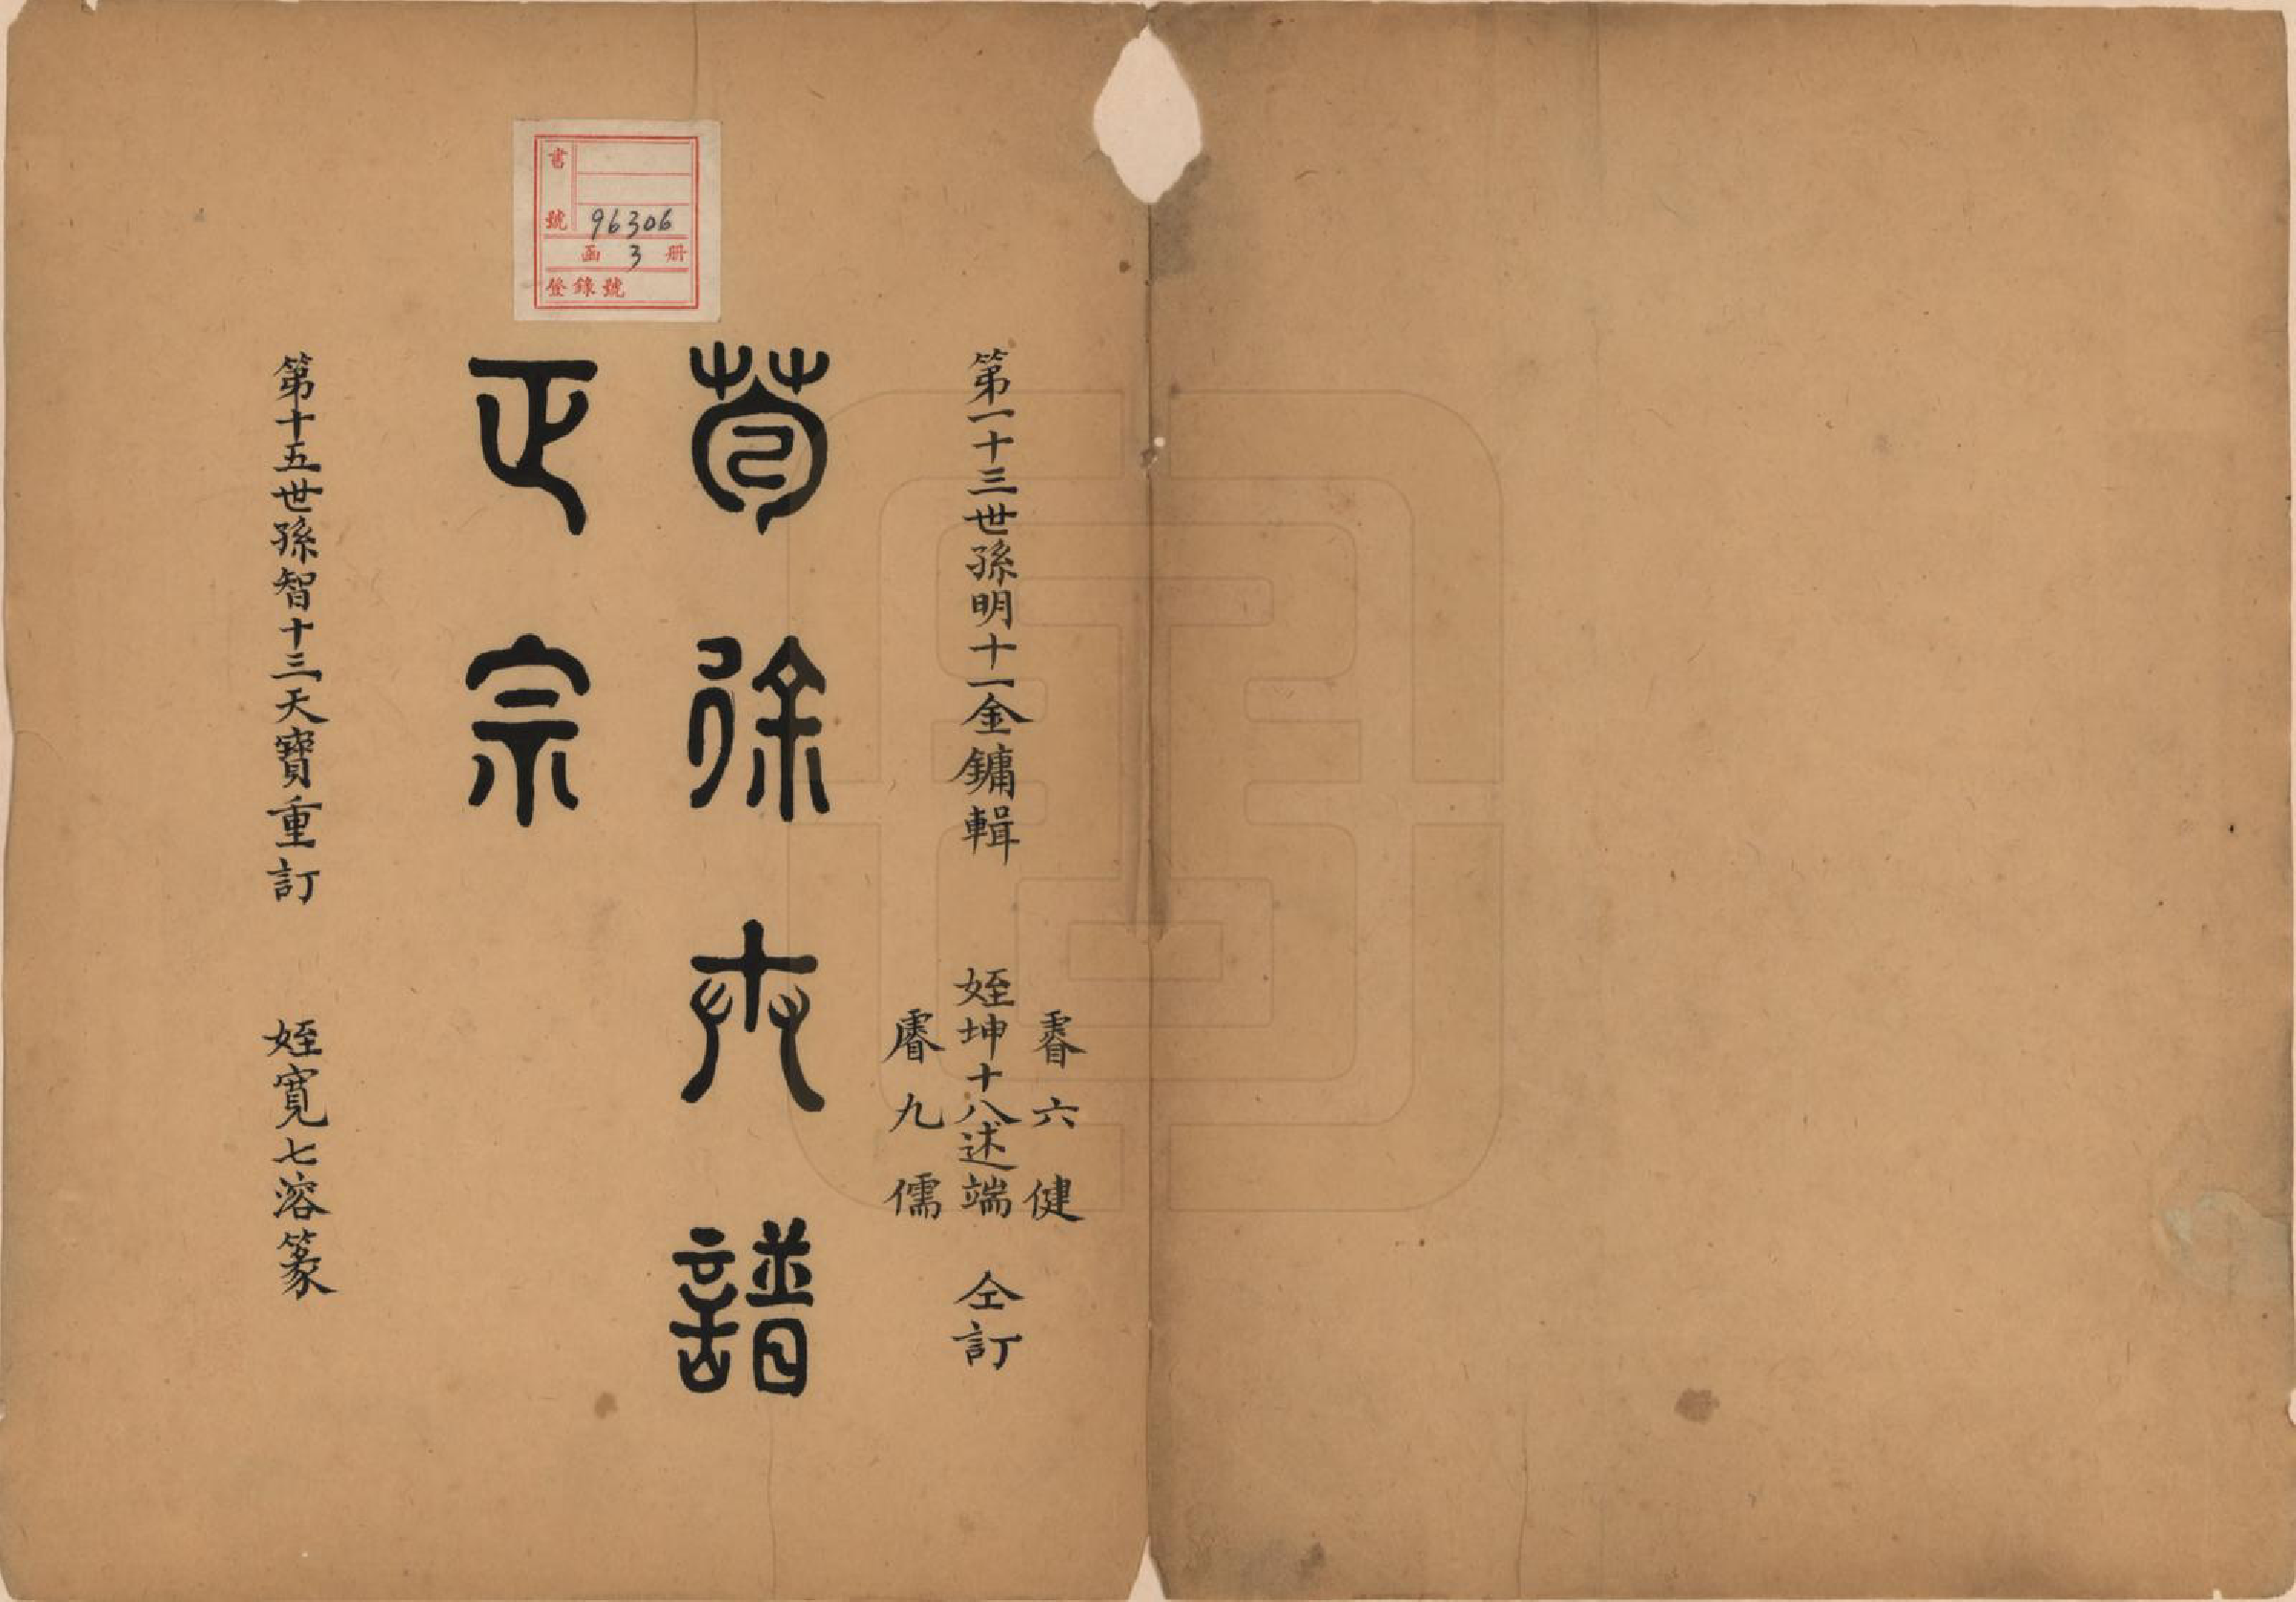 第一十三世孫明十一金鏞輯
睿六健
姪坤十八述端
睿九儒
仝訂
苞徐譜
正宗
第十五世孫智十三天寶重訂
姪寬七溶篆
書號 96306
函 3 册
登錄號